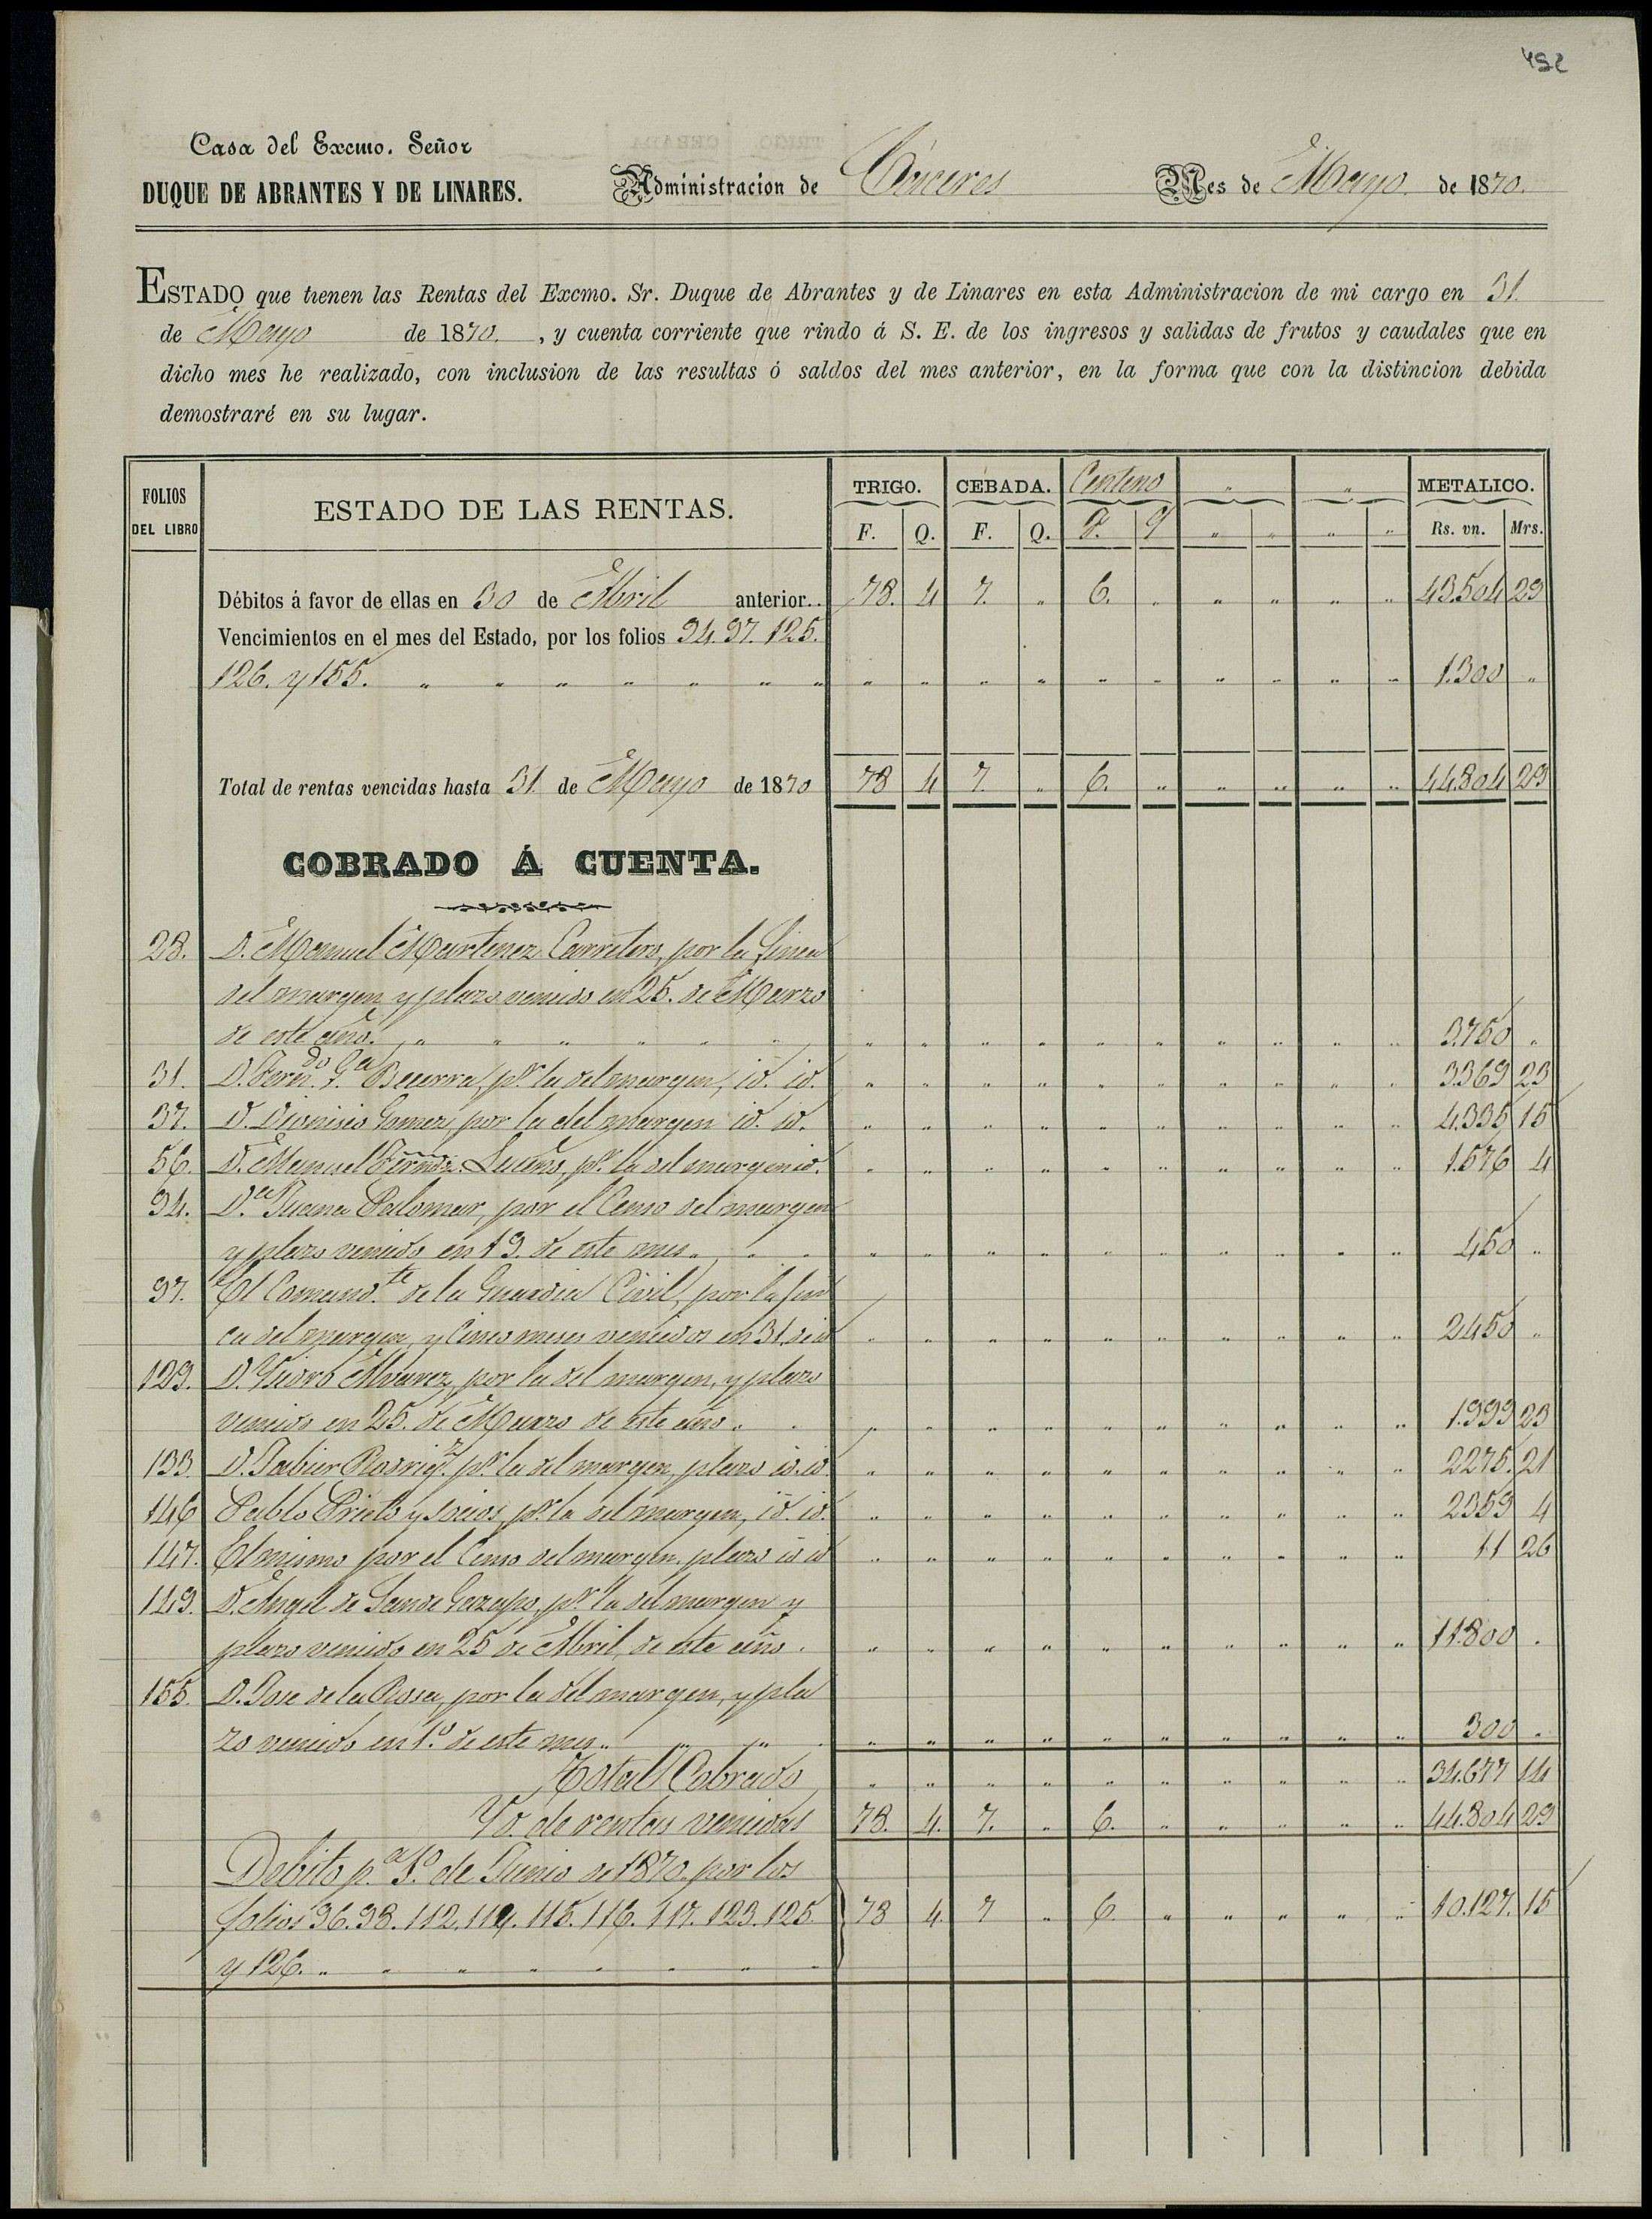 452
Casa del Excmo. Señor
DUQUE DE ABRANTES Y DE LINARES.
Administracion de Cáceres
Mes de Mayo de 1870.
ESTADO que tienen las Rentas del Excmo. Sr. Duque de Abrantes y de Linares en esta Administracion de mi cargo en 31.
de Mayo de 1870. , y cuenta corriente que rindo á S. E. de los ingresos y salidas de frutos y caudales que en
dicho mes he realizado, con inclusion de las resultas ó saldos del mes anterior, en la forma que con la distincion debida
demostraré en su lugar.
FOLIOS DEL LIBRO ESTADO DE LAS RENTAS. TRIGO. CEBADA. Centeno " " METALICO.
F. Q. F. Q. F. q " " " " Rs. vn. Mrs.
Débitos á favor de ellas en 30 de Abril anterior.. 78. 4 7. " 6. " " " " " 43.504 29
Vencimientos en el mes del Estado, por los folios 94. 97. 125.
126. y 155. " " " " " " " " " " " " " " " " " 1.300 "
Total de rentas vencidas hasta 31. de Mayo de 1870 78 4 7. " 6. " " " " " 44.804 29
COBRADO Á CUENTA.
28. D. Manuel Martinez Carretero, por la finca
del margen y plazo vencido en 25. de Marzo
de este año. " " " " " " " " " " " " " " " " 3.750 "
31. D. Fern.do G.a Becerra, p.r la del margen, id. id. " " " " " " " " " " 3.369 23
37. D. Dionisio Gomez, por la del margen id. id. " " " " " " " " " " 4.335 15
56. D. Manuel Ferndz. p.r la del margen id. " " " " " " " " " " 1.576 4
94. D.a Juana Palomar, por el Censo del margen
y plazo vencido en 19. de este mes " " " " " " " " " " " " " 450 "
97. El Comand.te de la Guardia Civil, por la fin
ca del margen, y cinco meses vencidos en 31. de id " " " " " " " " " " 2450 "
129. D. Ysidro Alvarez, por la del margen, y plazo
vencido en 25. de Marzo de este año. " " " " " " " " " " " 1.999 23
133. D. Jabier Rodrig.z p.r la del margen, plazo id. id. " " " " " " " " " " 2275. 21
146 Pablo Prieto y socios, p.r la del margen, id. id. " " " " " " " " " " 2359 4
147. El mismo por el Censo del margen. plazo id id " " " " " " " " " " 11 26
149. D. Angel de Sande Gazapo, p.r la del margen y
plazo vencido en 25 de Abril, de este año. " " " " " " " " " " 11.800 .
155. D. Jose de la Rosa, por la del margen, y pla
zo vencido en 1.o de este mes " " " " " " " " " " " " " 300 .
Total Cobrado " " " " " " " " " " 34.677 14
Yd. de rentas vencidas 78. 4. 7. " 6. " " " " " 44.804 29
Debito p.a 1.o de Junio de 1870. por los
folios 96. 98. 112. 114. 115. 116. 117. 123. 125. 78 4. 7 " 6. " " " " " 10.127. 15
y 126. " " " " " " " "